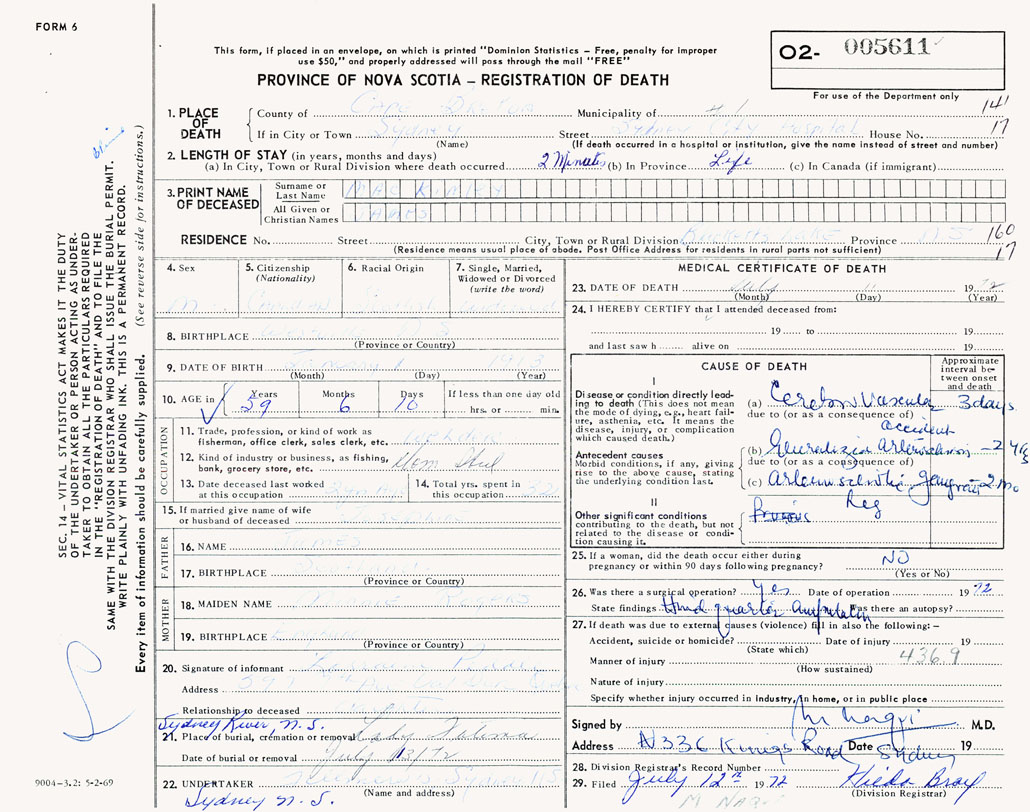 FORM 6
This form, if placed in an envelope, on which is printed "Dominion Statistics – Free, penalty for improper
use $50," and properly addressed will pass through the mail "FREE"
PROVINCE OF NOVA SCOTIA – REGISTRATION OF DEATH
O2- 005611
For use of the Department only
141
17
1. PLACE OF DEATH
County of Cape Breton Municipality of
If in City or Town Sydney Street Sydney City Hospital House No.
(Name) (If death occurred in a hospital or institution, give the name instead of street and number)
2. LENGTH OF STAY (in years, months and days)
(a) In City, Town or Rural Division where death occurred 2 Minutes (b) In Province Life (c) In Canada (if immigrant)
3. PRINT NAME OF DECEASED
Surname or Last Name
All Given or Christian Names JAMES
RESIDENCE No. Street City, Town or Rural Division Province N.S 160
(Residence means usual place of abode. Post Office Address for residents in rural parts not sufficient) 17
4. Sex M
5. Citizenship (Nationality) Canadian
6. Racial Origin
7. Single, Married, Widowed or Divorced (write the word)
8. BIRTHPLACE N.S
(Province or Country)
9. DATE OF BIRTH January 1 1913
(Month) (Day) (Year)
10. AGE in Years 59 Months 6 Days 10 If less than one day old hrs. or min.
OCCUPATION
11. Trade, profession, or kind of work as
fisherman, office clerk, sales clerk, etc.
12. Kind of industry or business, as fishing,
bank, grocery store, etc.
13. Date deceased last worked
at this occupation
14. Total yrs. spent in
this occupation 32
15. If married give name of wife
or husband of deceased
FATHER
16. NAME James
17. BIRTHPLACE Scotland
(Province or Country)
MOTHER
18. MAIDEN NAME Rogers
19. BIRTHPLACE
(Province or Country)
20. Signature of informant
Address
Relationship to deceased
Sydney River, N.S.
21. Place of burial, cremation or removal Lady Fatima
Date of burial or removal July 13/72
22. UNDERTAKER
(Name and address)
Sydney N.S.
MEDICAL CERTIFICATE OF DEATH
23. DATE OF DEATH July 11 1972
(Month) (Day) (Year)
24. I HEREBY CERTIFY that I attended deceased from:
19 to 19
and last saw h alive on 19
CAUSE OF DEATH
Approximate interval between onset and death
I
Disease or condition directly leading to death (This does not mean the mode of dying, e.g., heart failure, asthenia, etc. It means the disease, injury, or complication which caused death.)
(a) Cerebro Vascular accident 3 days
due to (or as a consequence of)
Antecedent causes
Morbid conditions, if any, giving rise to the above cause, stating the underlying condition last.
(b) Generalized Arteriosclerosis – 2 yrs
due to (or as a consequence of)
(c) Arteriosclerotic gangrene 2 mo
Leg
II
Other significant conditions
contributing to the death, but not related to the disease or condition causing it.
25. If a woman, did the death occur either during
pregnancy or within 90 days following pregnancy? NO
(Yes or No)
26. Was there a surgical operation? Yes Date of operation 1972
State findings Hind quarter Amputation Was there an autopsy?
27. If death was due to external causes (violence) fill in also the following: –
Accident, suicide or homicide? Date of injury 19
(State which)
Manner of injury 436.9
(How sustained)
Nature of injury
Specify whether injury occurred in industry, in home, or in public place
Signed by M Naqvi M.D.
Address 336 Kings Road Date Sydney 19
28. Division Registrar's Record Number
29. Filed July 12th 1972
(Division Registrar)
SEC. 14 – VITAL STATISTICS ACT MAKES IT THE DUTY
OF THE UNDERTAKER OR PERSON ACTING AS UNDER-
TAKER TO OBTAIN ALL THE PARTICULARS REQUIRED
IN THE "REGISTRATION OF DEATH" AND TO FILE THE
SAME WITH THE DIVISION REGISTRAR WHO SHALL ISSUE THE BURIAL PERMIT.
WRITE PLAINLY WITH UNFADING INK. THIS IS A PERMANENT RECORD.
Every item of information should be carefully supplied. (See reverse side for instructions.)
9004–3.2: 5-2-69